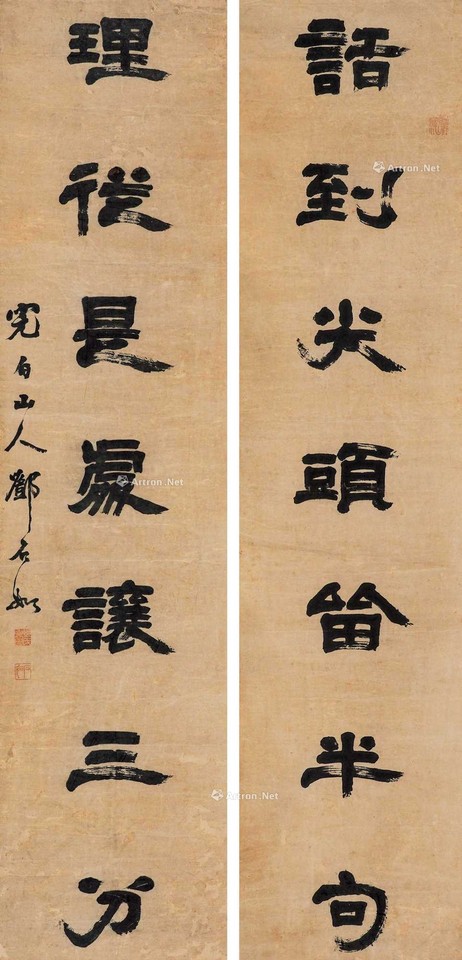 語到尖頭留半句
理從長處讓三分
完白山人鄧石如
Artron.Net
Artron.Net
Artron.Net